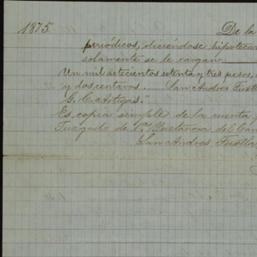 1875. De la
periódicos, diciéndose hipoteca
solamente se le cargan.
Un mil setecientos setenta y tres pesos,
y dos centavos. San Andrés Tuxtla
G. C. Artigas."
Es copia simple de la cuenta
Juzgado de 1ª Instancia del Can
San Andrés Tuxtla